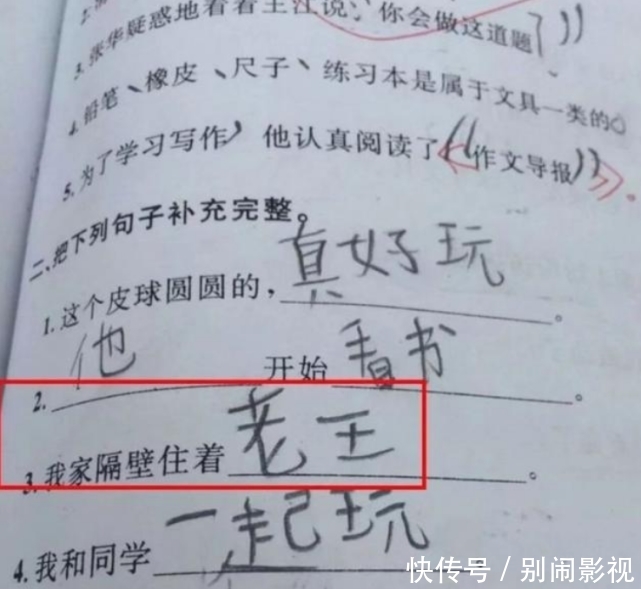 3.张华疑惑地看着王江说:，你会做这道题？”
4.铅笔、橡皮、尺子、练习本是属于文具一类的。
5.为了学习写作，他认真阅读了《作文导报》。
二、把下列句子补充完整。
1.这个皮球圆圆的，真好玩。
2.他开始看书。
3.我家隔壁住着老王。
4.我和同学一起玩
快传号/别闹影视